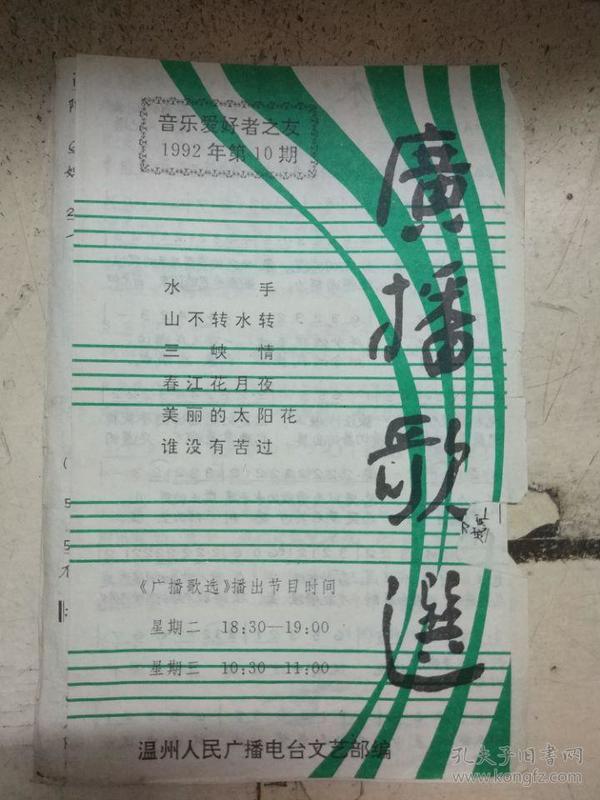 音乐爱好者之友
1992年第10期
廣播歌選
水手
山不转水转
三峡情
春江花月夜
美丽的太阳花
谁没有苦过
《广播歌选》播出节目时间
星期二 18:30—19:00
星期三 10:30—11:00
温州人民广播电台文艺部编
孔夫子旧书网
www.kongfz.com